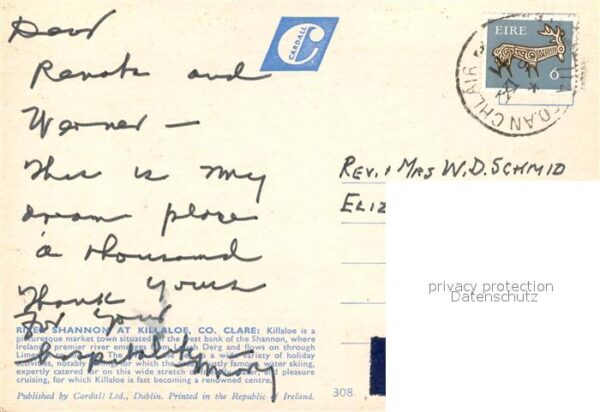 Dear
Renate and
Werner —
This is my
dream place
a thousand
Thank yous
for your
hospitality
CARDALL
EIRE
6
CO. AN CHLÁIR
REV. + MRS W. D. SCHMID
ELIZ
privacy protection
Datenschutz
RIVER SHANNON AT KILLALOE, CO. CLARE: Killaloe is a
picturesque market town situated on the west bank of the Shannon, where
Ireland's premier river emerges from Lough Derg and flows on through
Limerick a wide variety of holiday
activities, notably for which the justly famous water skiing,
expertly catered for on this wide stretch of and pleasure
cruising, for which Killaloe is fast becoming a renowned centre.
Published by Cardall Ltd., Dublin. Printed in the Republic of Ireland.
308